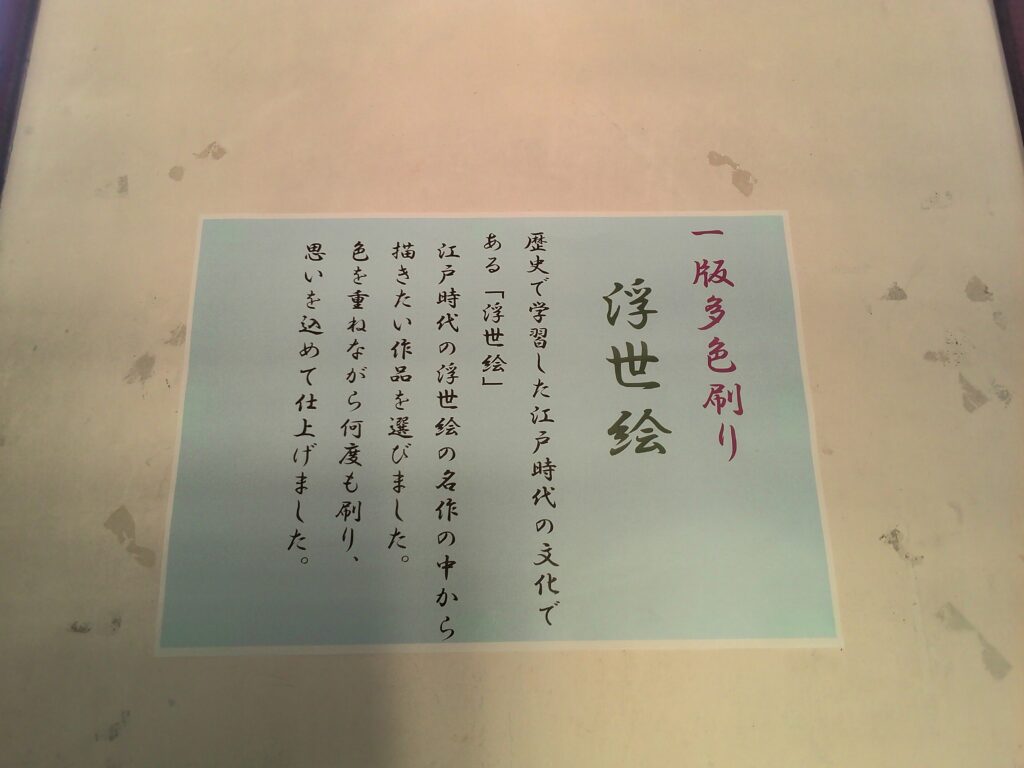 一版多色刷り
浮世絵
歴史で学習した江戸時代の文化で
ある「浮世絵」
江戸時代の浮世絵の名作の中から
描きたい作品を選びました。
色を重ねながら何度も刷り、
思いを込めて仕上げました。